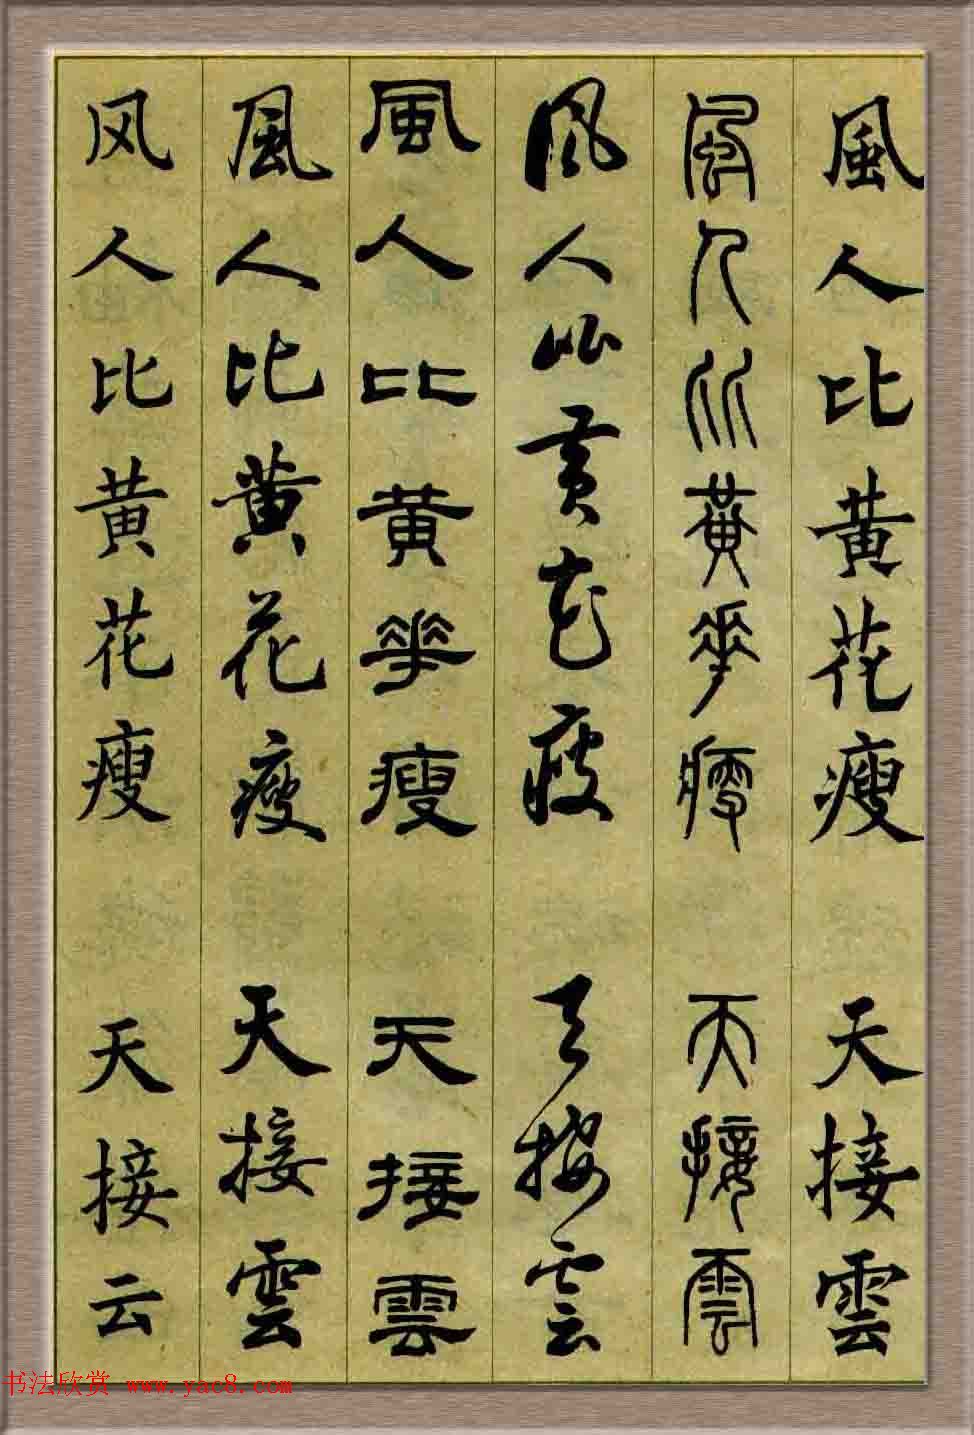 風人比黃花瘦 天接雲
風人比黃華瘦 天接雲
風人比黃花瘦 天接雲
風人比黃華瘦 天接雲
風人比黃花瘦 天接雲
风人比黄花瘦 天接云
书法欣赏 www.yac8.com